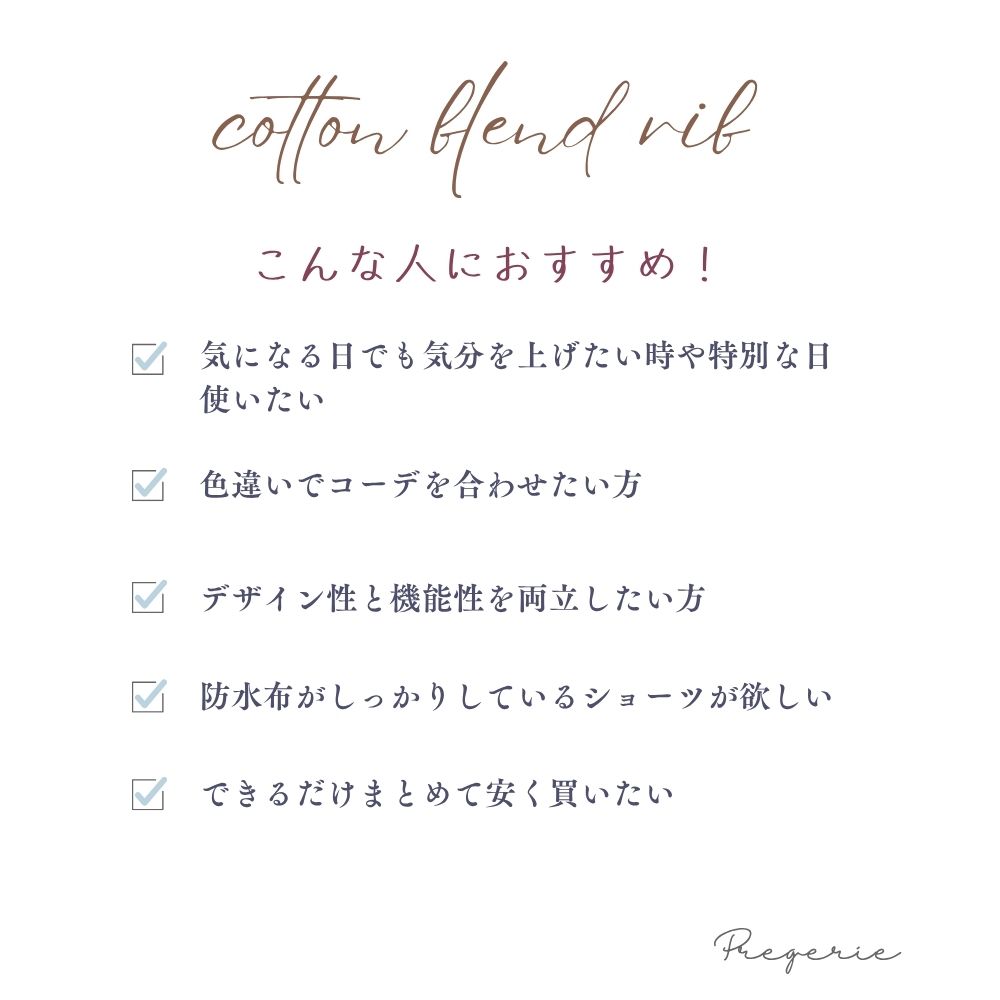 cotton blend rib
こんな人におすすめ！
気になる日でも気分を上げたい時や特別な日
使いたい
色違いでコーデを合わせたい方
デザイン性と機能性を両立したい方
防水布がしっかりしているショーツが欲しい
できるだけまとめて安く買いたい
Pregerie